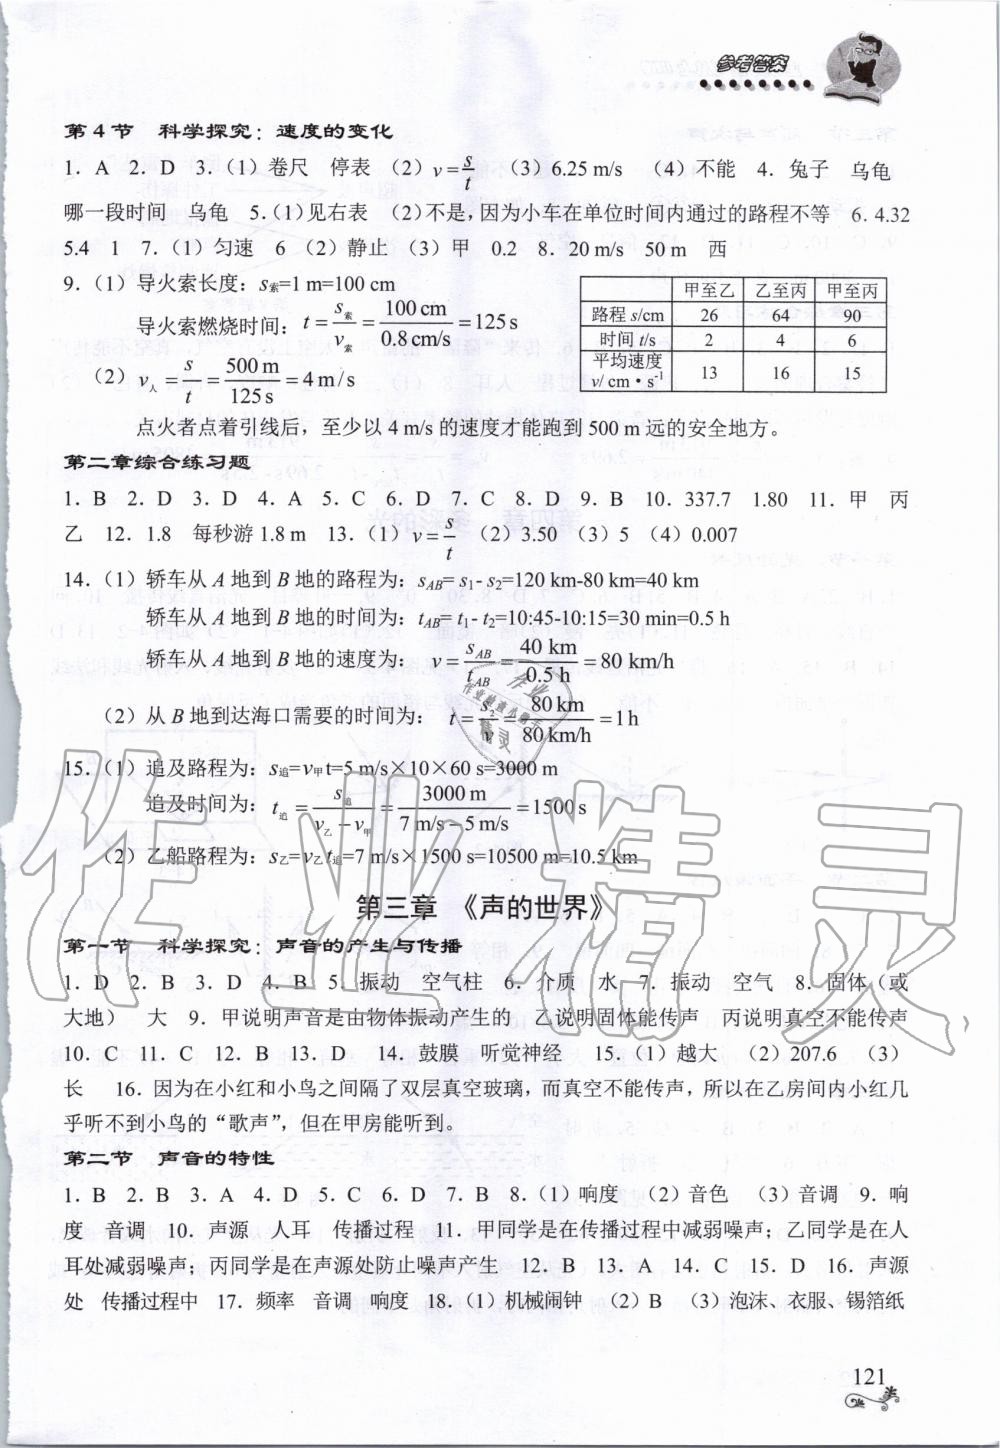 参考答案
第4节　科学探究：速度的变化
1．A　2．D　3．（1）卷尺　停表　（2）v=s/t　（3）6.25 m/s　（4）不能　4．兔子　乌龟
哪一段时间　乌龟　5．（1）见右表　（2）不是，因为小车在单位时间内通过的路程不等　6．4.32
5.4　1　7．（1）匀速　6　（2）静止　（3）甲　0.2　8．20 m/s　50 m　西
9．（1）导火索长度：s索=1 m=100 cm
导火索燃烧时间：t=s索/v索=100 cm/0.8 cm/s=125 s
（2）v人=s/t=500 m/125 s=4 m/s
点火者点着引线后，至少以 4 m/s 的速度才能跑到 500 m 远的安全地方。
甲至乙　乙至丙　甲至丙
路程 s/cm　26　64　90
时间 t/s　2　4　6
平均速度 v/ cm·s-1　13　16　15
第二章综合练习题
1．B　2．D　3．D　4．A　5．C　6．D　7．C　8．D　9．B　10．337.7　1.80　11．甲　丙
乙　12．1.8　每秒游 1.8 m　13．（1）v=s/t　（2）3.50　（3）5　（4）0.007
14．（1）轿车从 A 地到 B 地的路程为：sAB= s1- s2=120 km-80 km=40 km
轿车从 A 地到 B 地的时间为：tAB= t1- t2=10:45-10:15=30 min=0.5 h
轿车从 A 地到 B 地的速度为：v=sAB/tAB=40 km/0.5 h=80 km/h
（2）从 B 地到达海口需要的时间为：t=s2/v=80 km/80 km/h=1 h
15．（1）追及路程为：s追=v甲t=5 m/s×10×60 s=3000 m
追及时间为：t追=s追/v乙-v甲=3000 m/7 m/s-5 m/s=1500 s
（2）乙船路程为：s乙=v乙t追=7 m/s×1500 s=10500 m=10.5 km
第三章　《声的世界》
第一节　科学探究：声音的产生与传播
1．D　2．B　3．D　4．B　5．振动　空气柱　6．介质　水　7．振动　空气　8．固体（或
大地）　大　9．甲说明声音是由物体振动产生的　乙说明固体能传声　丙说明真空不能传声
10．C　11．C　12．B　13．D　14．鼓膜　听觉神经　15．（1）越大　（2）207.6　（3）
长　16．因为在小红和小鸟之间隔了双层真空玻璃，而真空不能传声，所以在乙房间内小红几
乎听不到小鸟的“歌声”，但在甲房能听到。
第二节　声音的特性
1．B　2．B　3．A　4．D　5．C　6．D　7．B　8．（1）响度　（2）音色　（3）音调　9．响
度　音调　10．声源　人耳　传播过程　11．甲同学是在传播过程中减弱噪声；乙同学是在人
耳处减弱噪声；丙同学是在声源处防止噪声产生　12．B　13．A　14．C　15．D　16．声源
处　传播过程中　17．频率　音调　响度　18．（1）机械闹钟　（2）B　（3）泡沫、衣服、锡箔纸
121
作业精灵